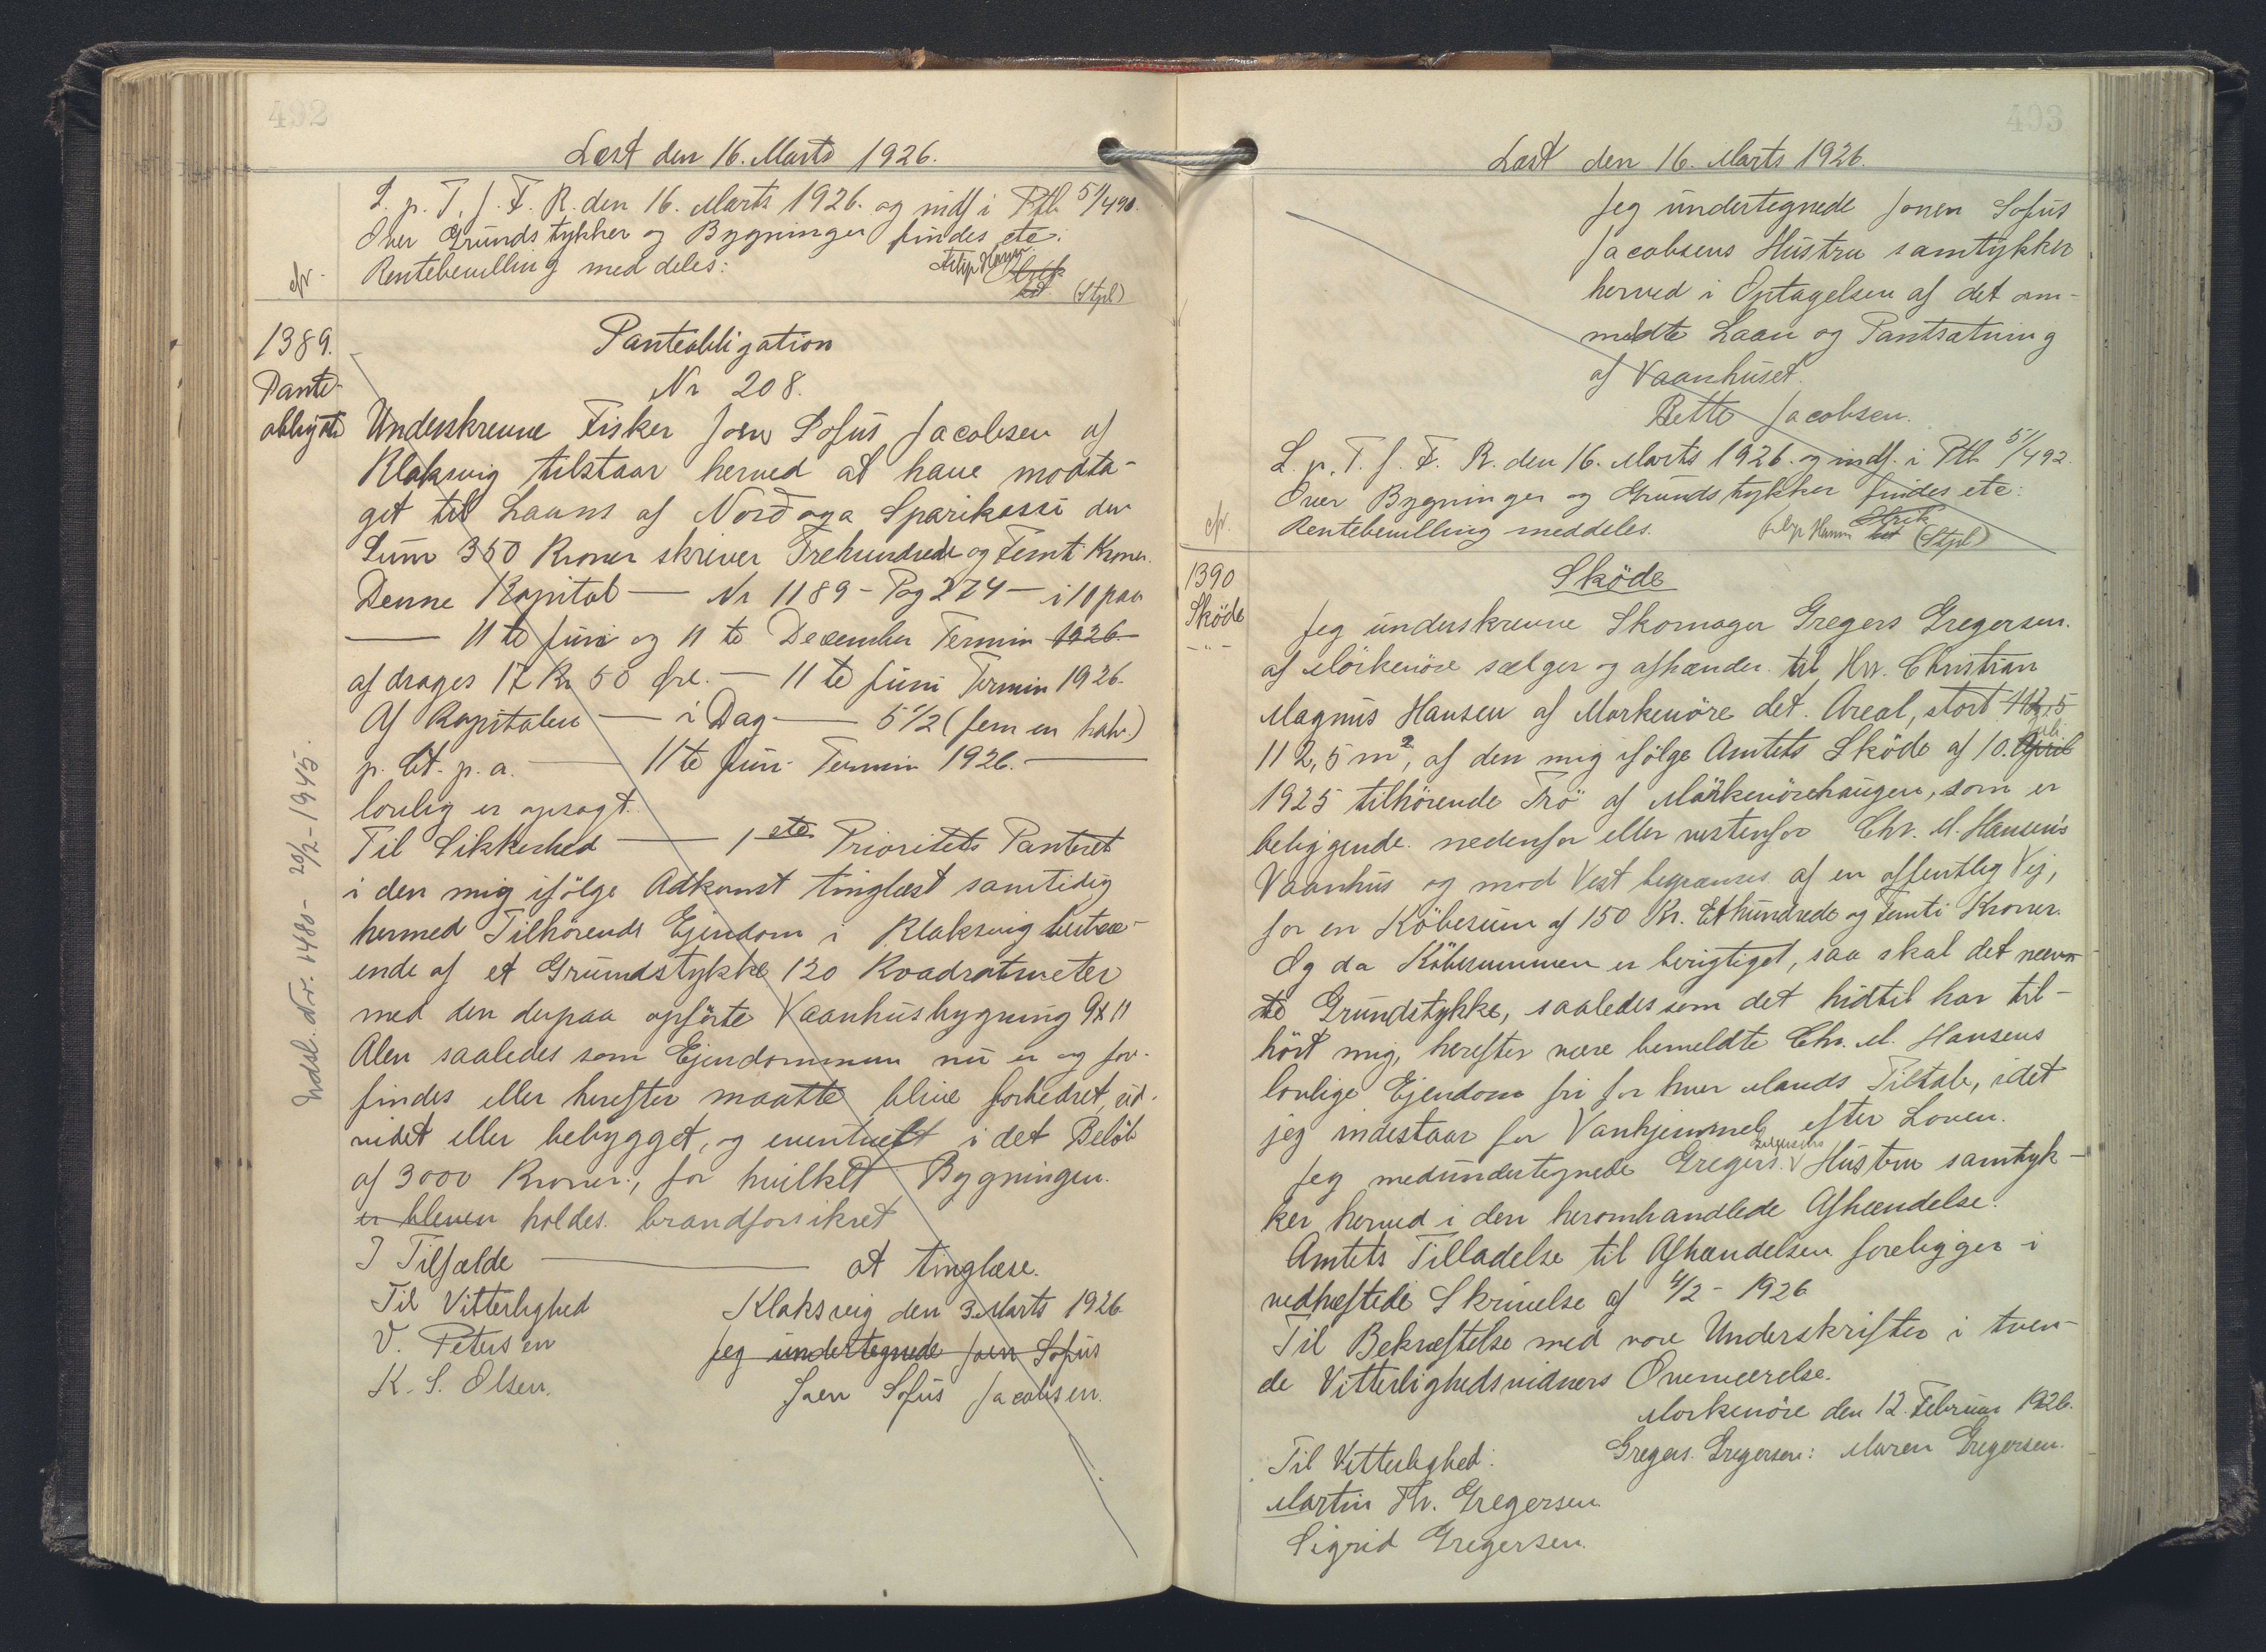 492
Læst den 16. Marts 1926.
L. p. T. f. F. R. den 16. Marts 1926. og indf i Ptb 51/490.
Over Grundstykker og Bygninger findes etc.
cfr. Rentebevilling meddeles:
(Stpl)
1389.
Pante-
obligati
Panteobligation
Nr 208.
Underskrevne Fisker Joen Sofus Jacobsen af
Klaksvig tilstaar herved at have modta-
get til Laans af Norðoya Sparikassi den
Sum 350 Kroner skriver Trehundrede og Femti Kroner.
Denne Kapital — Nr 1189 - Pag 274 — i 10 paa
— 11te Juni og 11te December Termin 1926
afdrages 17 Kr 50 Øre. — 11te Juni Termin 1926.
Af Kapitalen — i Dag — 5 1/2 (fem en halv)
p. Ct. p. a. — 11te Juni Termin 1926. —
lovlig er opsagt.
Til Sikkerhed — 1ste Prioritets Panteret
i den mig ifölge Adkomst tinglæst samtidig
hermed Tilhörende Ejendom i Klaksvig bestaa-
ende af et Grundstykke 120 Kvadratmeter
med den derpaa opförte Vaanhusbygning 9x11
Alen saaledes som Ejendommen nu er og for-
findes eller herefter maatte blive forbedret, ud-
videt eller bebygget, og eventuelt i det Belöb
af 3000 Kroner, for hvilket Bygningen
er bleven holdes brandforsikret
I Tilfælde — at tinglæse.
Til Vitterlighed Klaksvig den 3. Marts 1926
V. Petersen Jeg undertegnede Joen Sofus
K. S. Olsen. Joen Sofus Jacobsen.
Indsl. Nr. 1480 - 20/2 - 1945.
493
Læst den 16. Marts 1926.
Jeg undertegnede Jonen Sofus
Jacobsens Hustru samtykker
herved i Optagelsen af det om-
meldte Laan og Pantsætning
af Vaanhuset.
Bette Jacobsen.
L. p. T. f. F. R. den 16. Marts 1926. og indf. i Ptb 51/492.
Over Bygninger og Grundstykker findes etc:
cfr. Rentebevilling meddeles.
(Stpl)
1390
Sköde
- " -
Sköde
Jeg underskrevne Skomager Gregers Gregersen.
af Mörkenöre sælger og afhænder til Hr. Christian
Magnus Hansen af Morkenöre det. Areal, stort 112,5
112,5 m², af den mig ifölge Amtets Sköde af 10. April Juli
1925 tilhörende Trö af Mörkenörehaugen, som er
beliggende nedenfor eller vestenfor Chr. M. Hansen's
Vaanhus og mod Vest begrænses af en offentlig Vej,
for en Köbesum af 150 Kr. Ethundrede og Femti Kroner.
Og da Köbesummen er berigtiget, saa skal det nævn-
te Grundstykke, saaledes som det hidtil har til-
hört mig, herefter være bemeldte Chr. M. Hansens
lovlige Ejendom fri for hver Mands Tiltale, idet
jeg indestaar for Vanhjemmel efter Loven.
Jeg medundertegnede Gregers Gregersens Hustru samtyk-
ker herved i den heromhandlede Afhændelse.
Amtets Tilladelse til Afhændelsen foreligger i
vedhæftede Skrivelse af 4/2 - 1926
Til Bekræftelse med vore Underskrifter i tven-
de Vitterlighedsvidners Overværelse.
Morkenöre den 12. Februar 1926.
Til Vitterlighed: Gregers Gregersen: Maren Gregersen.
Martin Fr. Gregersen
Sigrid Gregersen.